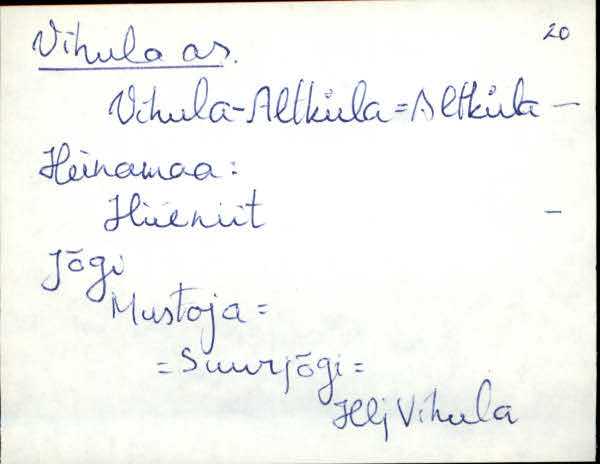 Vihula as. 20
Vihula-Altküla = Altküla —
Heinamaa:
Hiieniit —
Jõgi
Mustoja =
= Suurjõgi =
Hlj Vihula